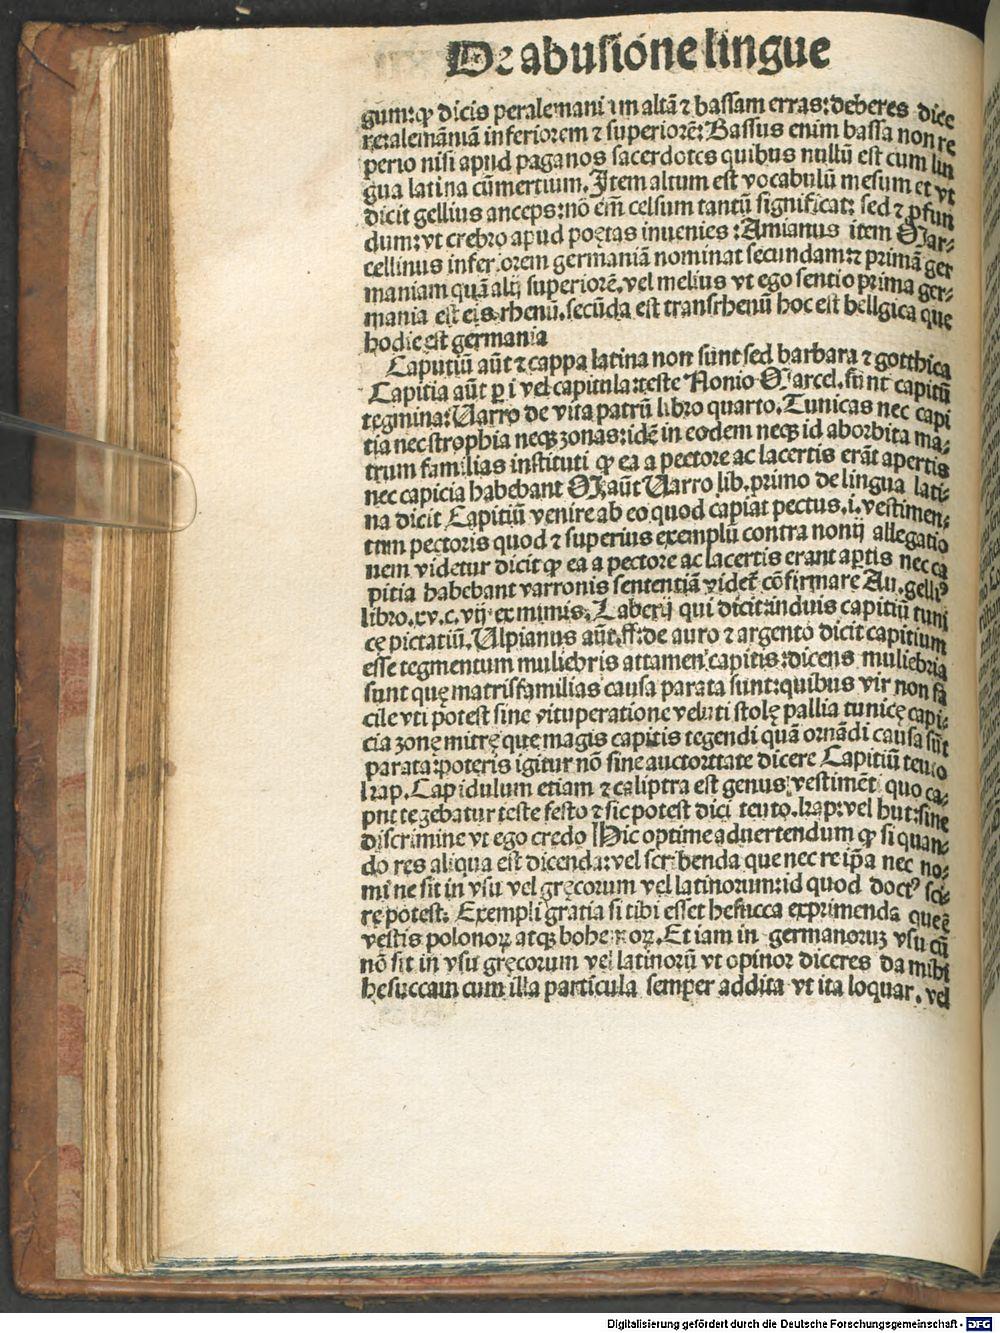 De abusione lingue
gum:ꝙ dicis per alemaniam altā ⁊ bassam erras:deberes dice
re:alemāniā inferiorem ⁊ superiorē:Bassus enim bassa non re
perio nisi apud paganos sacerdotes quibus nullū est cum lin
gua latina cūmertium. Item altum est vocabulū mesum et vt
dicit gellius anceps:nō em̄ celsum tantū significat: sed ⁊ ꝓfun
dum:vt crebro apud poętas inuenies:Amianus item Mar⸗
cellinus inferiorem germaniā nominat secundam:⁊ primā ger
maniam quā alij superiorē.vel melius vt ego sentio prima ger⸗
mania est cis rhenū.secūda est transrhenū hoc est bellgica que
hodie est germania
Caputiū aūt ⁊ cappa latina non sunt sed barbara ⁊ gotthica
Capitia aūt ꝑ i vel capitula:teste Nonio Marcel. sūnt capitū
tegmina:Uarro de vita patrū libro quarto. Tunicas nec capi
tia nec strophia neqꝫ zonas:idē in eodem neqꝫ id aborbita ma⸗
trum familias instituti ꝙ ea a pectore ac lacertis erāt apertis
nec capicia habebant M. aūt Uarro lib. primo de lingua lati⸗
na dicit Capitiū venire ab eo quod capiat pectus.i. vestimen⸗
tum pectoris quod ⁊ superius exemplū contra nonij allegatio
nem videtur dicit ꝙ ea a pectore ac lacertis erant aꝑtis nec ca
pitia habebant varronis sententiā videt̄ cōfirmare Au. gelliꝰ
libro.xv.c.vij. ex mimis. Laberij qui dicit:induis capitiū tuni
cę pictatiū. Ulpianus aūt.ff:de auro ⁊ argento dicit capitium
esse tegmentum muliebris attamen capitis:dicens muliebria
sunt quę matrisfamilias causa parata sunt:quibus vir non fa
cile vti potest sine vituperatione veluti stolę pallia tunicę capi⸗
cia zonę mitrę que magis capitis tegendi quā ornādi causa sūt
parata:poteris igitur nō sine auctoritate dicere Capitiū teuto
kap. Capidulum etiam ⁊ caliptra est genus vestimēt quo ca⸗
put tegebatur teste festo ⁊ sic potest dici teuto. kap:vel hut:sine
discrimine vt ego credo Hic optime aduertendum ꝙ si quan⸗
do res aliqua est dicenda:vel scribenda que nec re ip̄a nec no⸗
mine sit in vsu vel gręcorum vel latinorum:id quod doctꝰ sci⸗
re potest. Exempli gratia si tibi esset hesucca exprimenda que ē
vestis polonoꝝ atqꝫ bohemoꝝ. Et iam in germanoruꝫ vsu cū
nō sit in vsu gręcorum vel latinorū vt opinor diceres da mihi
hesuccam cum illa particula semper addita vt ita loquar. vel
Digitalisierung gefördert durch die Deutsche Forschungsgemeinschaft - DFG